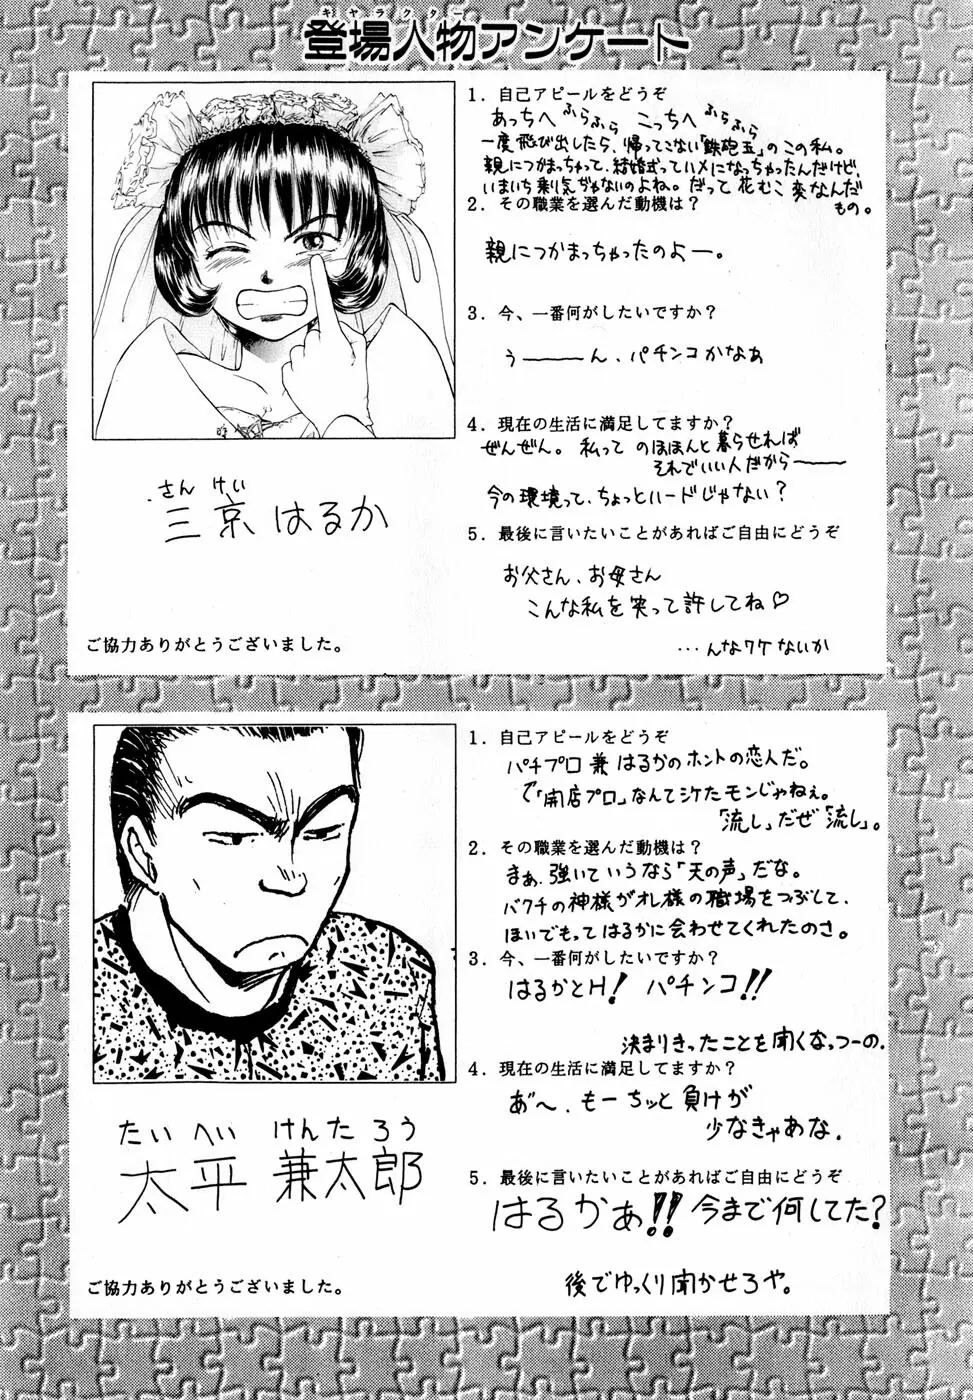 キャラクター
登場人物アンケート
1．自己アピールをどうぞ
あっちへふらふら こっちへふらふら
一度飛び出したら、帰ってこない「鉄砲玉」のこの私。
親につかまっちゃって、結婚式ってハメになっちゃったんだけど、
いまいち乗り気がないのよね。だって花むこ変なんだ
もの。
2．その職業を選んだ動機は？
親につかまっちゃったのよー。
3．今、一番何がしたいですか？
う――――ん、パチンコかなあ
4．現在の生活に満足してますか？
ぜんぜん。私って のほほんと暮らせれば
それでいい人だから――
今の環境って、ちょっとハードじゃない？
5．最後に言いたいことがあればご自由にどうぞ
お父さん、お母さん
こんな私を笑って許してね♡
…んなワケないか
さん けい
三京はるか
ご協力ありがとうございました。
1．自己アピールをどうぞ
パチプロ兼はるかのホントの恋人だ。
で「開店プロ」なんてシケたモンじゃねぇ。
「流し」だぜ「流し」。
2．その職業を選んだ動機は？
まぁ、強いていうなら「天の声」だな。
バクチの神様がオレ様の職場をつぶして、
ほいでもってはるかに会わせてくれたのさ。
3．今、一番何がしたいですか？
はるかとH！ パチンコ!!
決まりきったことを聞くなっつーの。
4．現在の生活に満足してますか？
あ゛～、もーちッと負けが
少なきゃあな。
5．最後に言いたいことがあればご自由にどうぞ
はるかぁ!! 今まで何してた？
後でゆっくり聞かせろや。
たい へい けんたろう
太平 兼太郎
ご協力ありがとうございました。